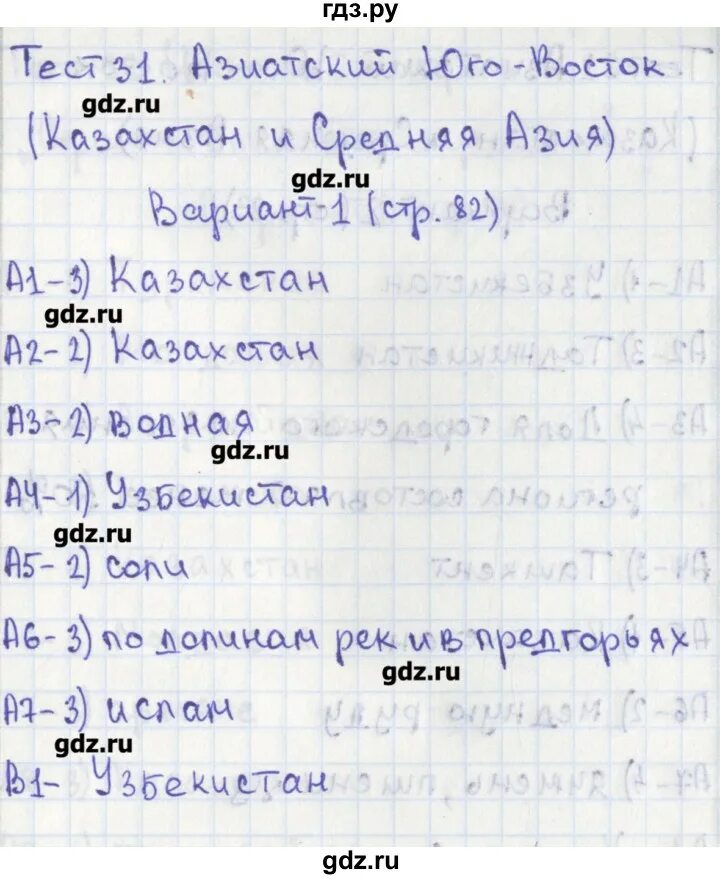 гдз.ру
Тест 31. Азиатский Юго-Восток
gdz.ru
(Казахстан и Средняя Азия)
gdz.ru
Вариант 1 (стр. 82)
А1-3) Казахстан
gdz.ru
А2-2) Казахстан
А3-2) водная
gdz.ru
А4-1) Узбекистан
gdz.ru
А5-2) соли
А6-3) по долинам рек и в предгорьях
gdz.ru
А7-3) ислам
gdz.ru
В1- Узбекистан
gdz.ru